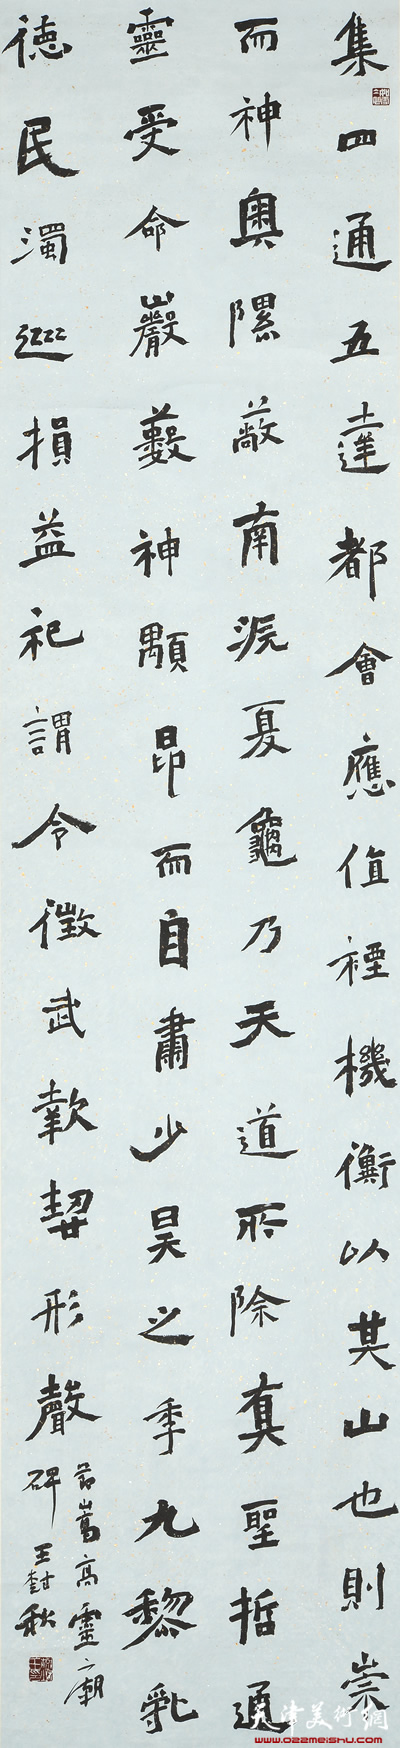 集四通五達都會應值禋機衡以其山也則崇
而神奧隰敞南派夏龜乃天道所除真聖哲通
靈受命巖薮神顒昂而自肅少昊之季九黎亂
德民濁巡損益祀謂令徵武欽契形聲
節嵩高靈廟
碑 王對秋
天津美術網
www.022meishu.com